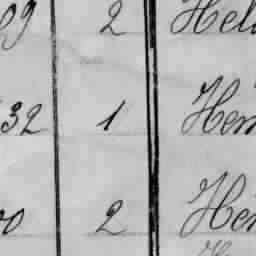 09 2 Hel
32 1 Hen
00 2 Hen